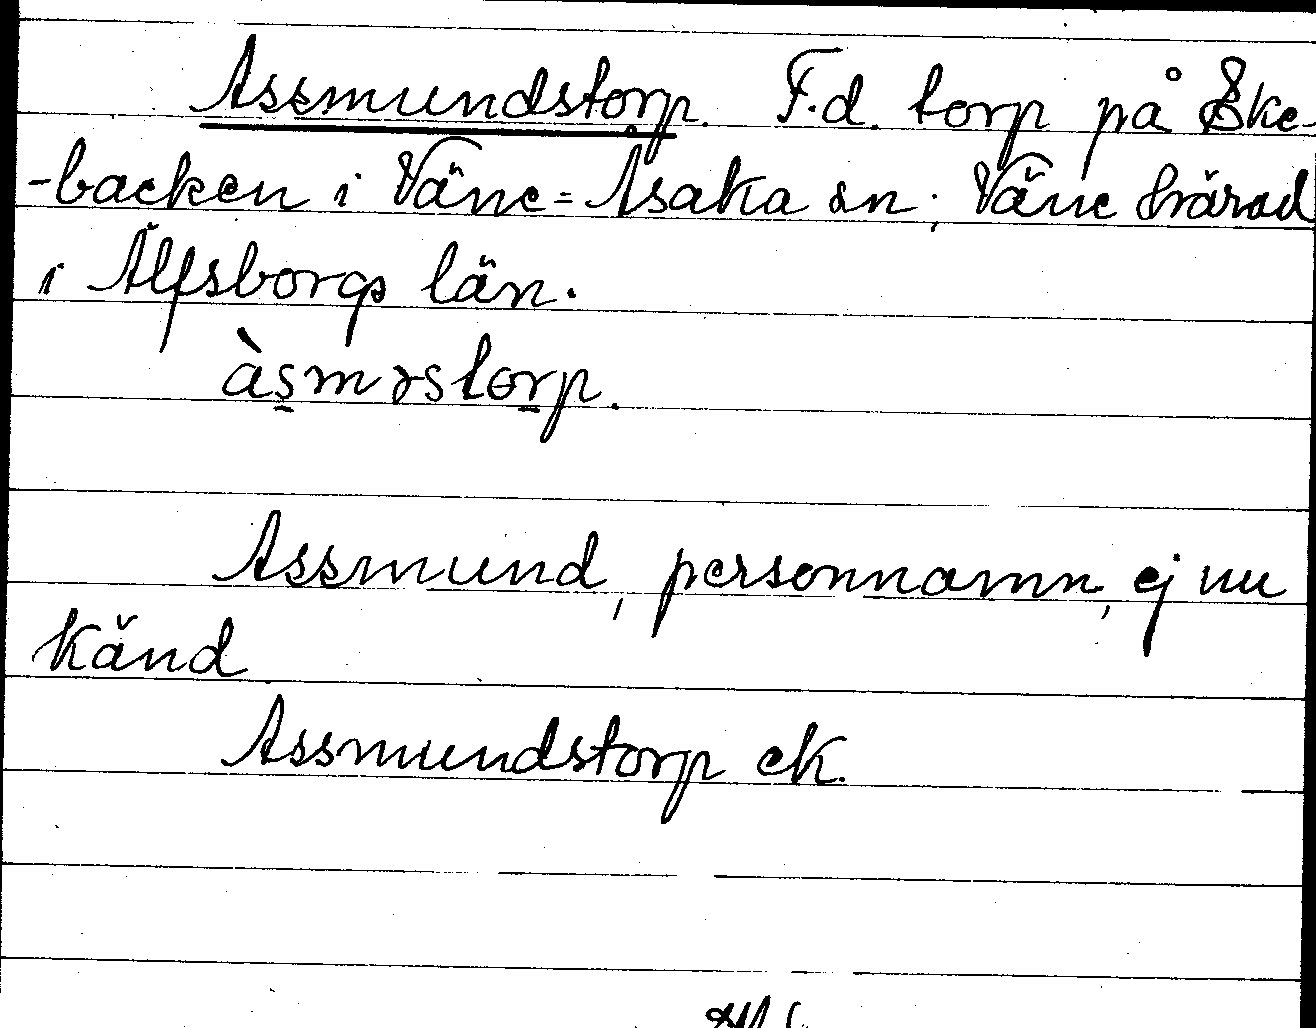 Assmundstorp. F.d. torp på Ske-
-backen i Väne=Åsaka sn; Väne härad
i Älfsborgs län.
àsməstorp.
Assmund, personnamn, ej nu
känd
Assmundstorp ek.